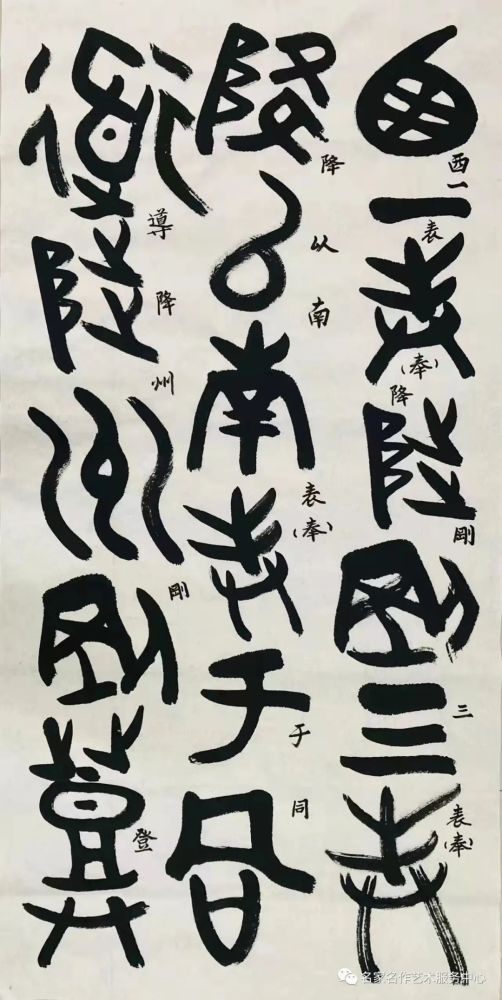 西一表(奉)降剛三表(奉)
降以南表(奉)于同
導降州剛登
名家名作艺术服务中心